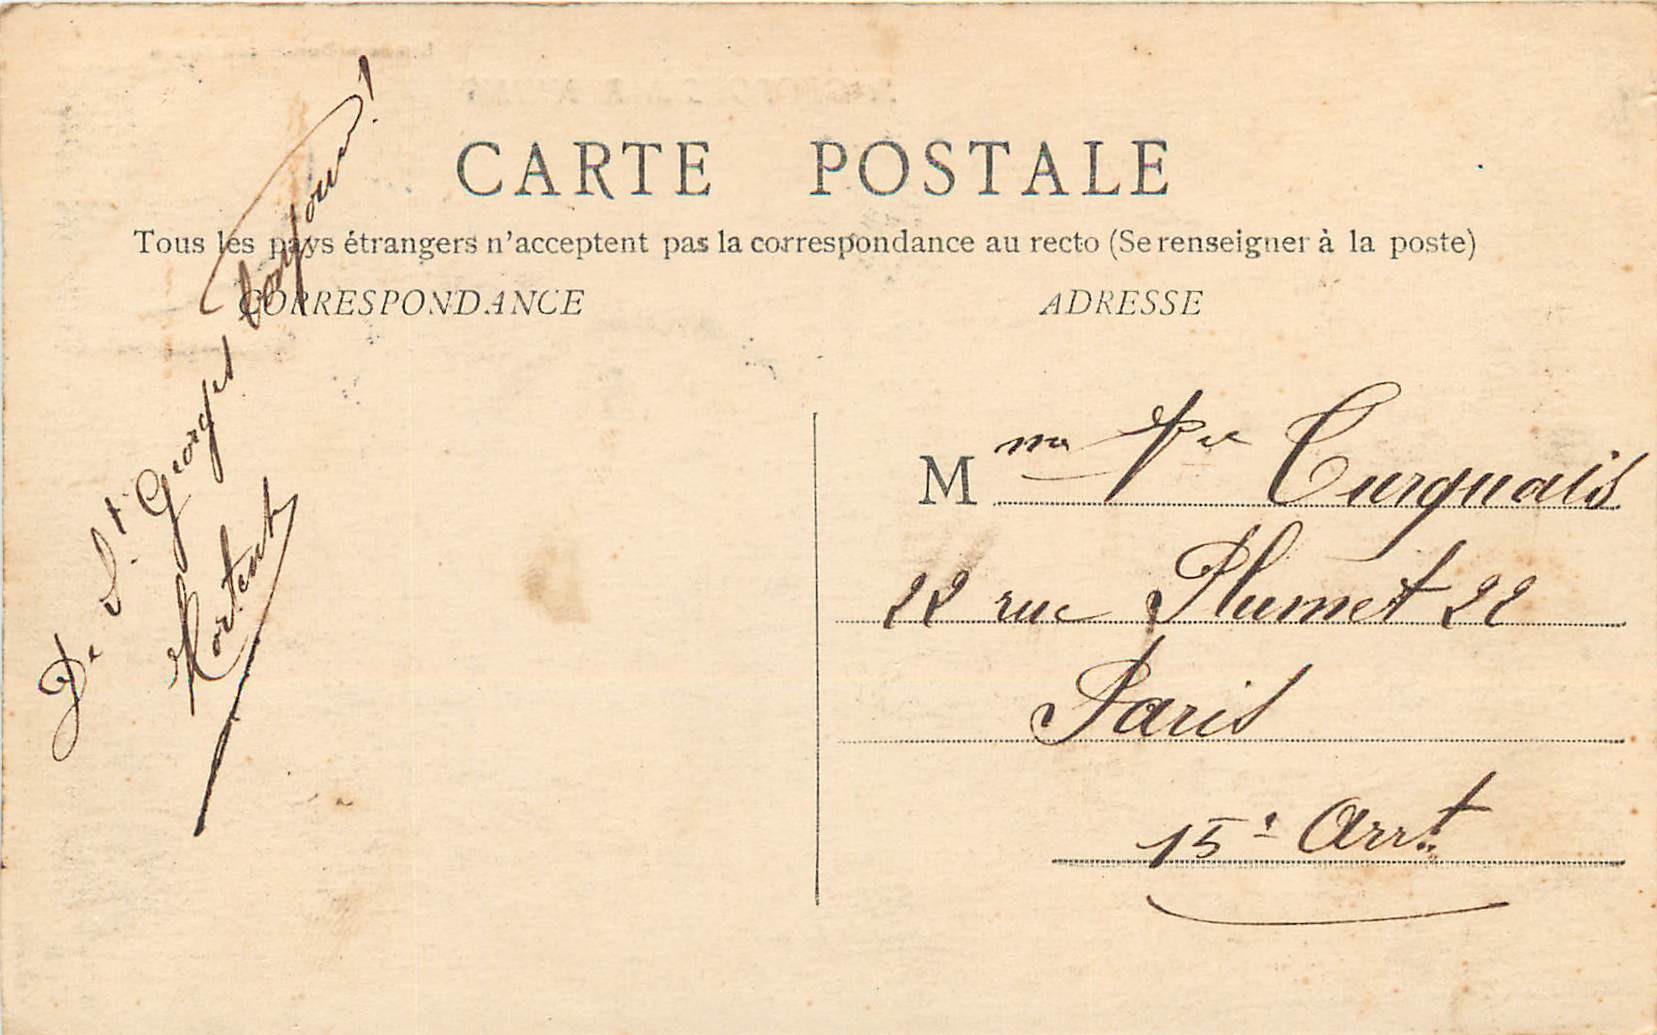 CARTE POSTALE
Tous les pays étrangers n'acceptent pas la correspondance au recto (Se renseigner à la poste)
CORRESPONDANCE
De St Georges bonjour!
Hortense
ADRESSE
Mme Vve Turquais
22 rue Plumet 22
Paris
15e Arrt